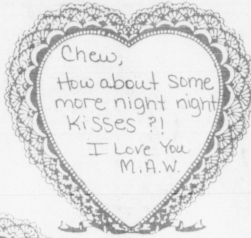 Chew,
How about some
more night night
Kisses ?!
I Love You
M.A.W.